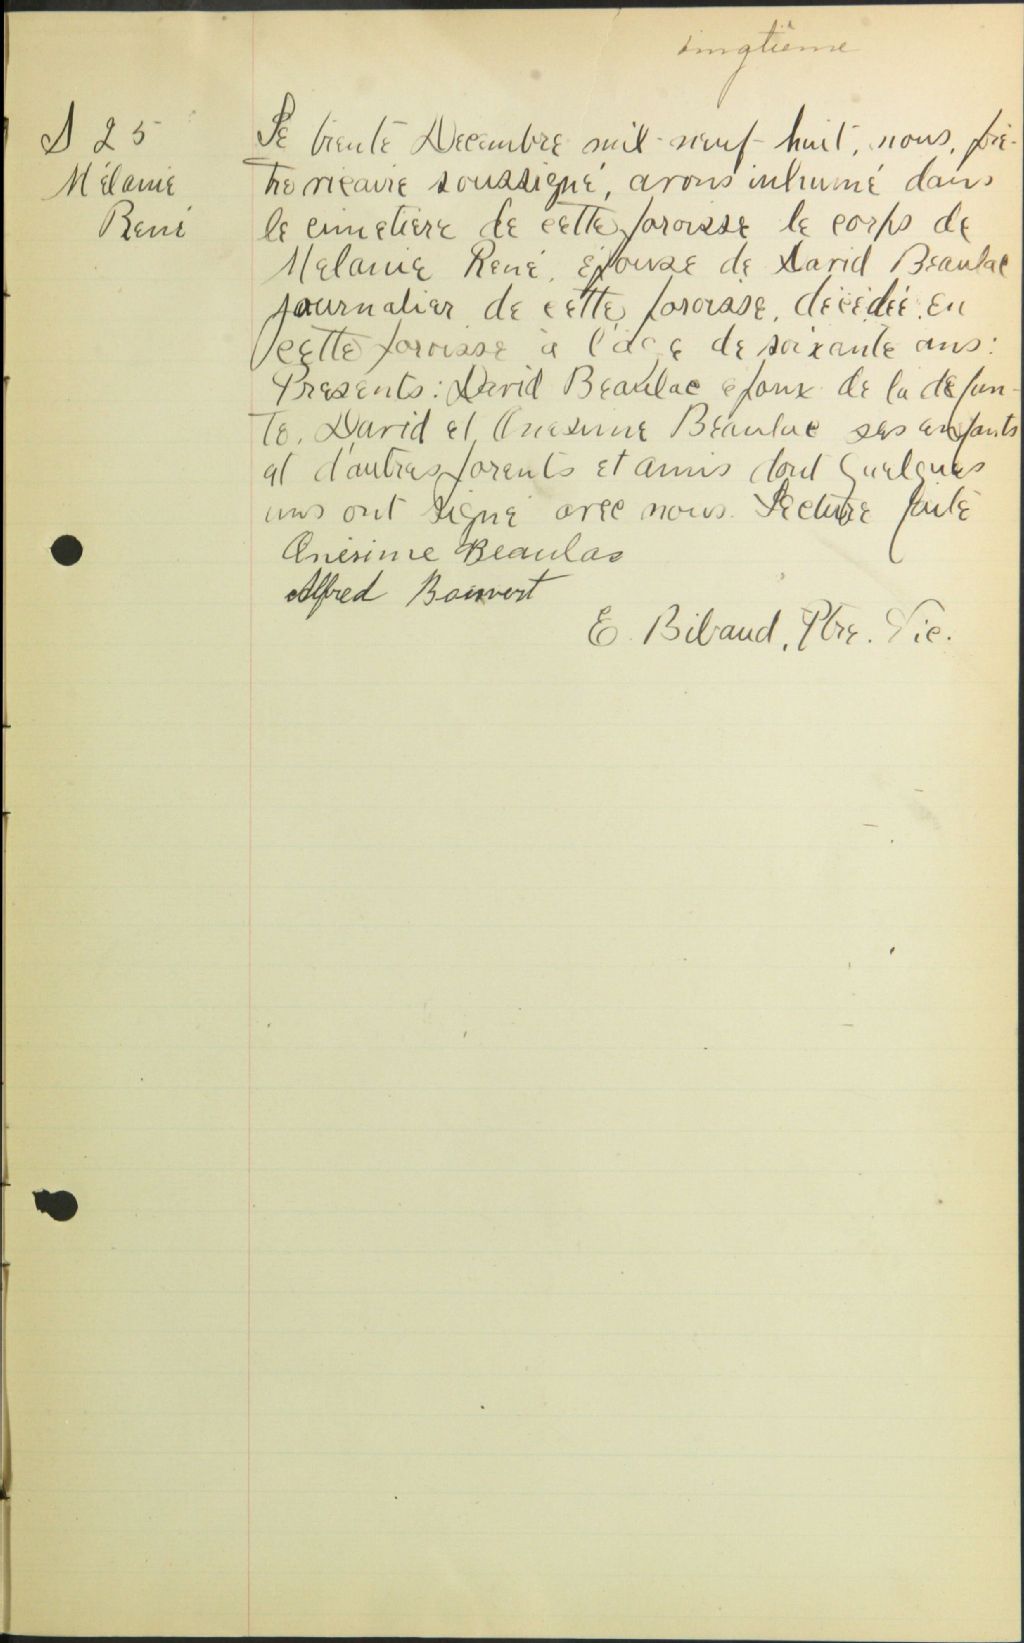 vingtième
S 25
Mélanie
René
Le trente Decembre mil-neuf-huit, nous, prê-
tre vicaire soussigné, avons inhumé dans
le cimetière de cette paroisse le corps de
Melanie René, épouse de David Beaulac
journalier de cette paroisse, décédée en
cette paroisse à l'age de soixante ans:
Presents: David Beaulac epoux de la défun-
te, David et Onesime Beaulac ses enfants
et d'autres parents et amis dont quelques
uns ont signé avec nous. Lecture faite
Onésime Beaulac
Alfred Boisvert
E. Bibaud, Ptre. Vic.